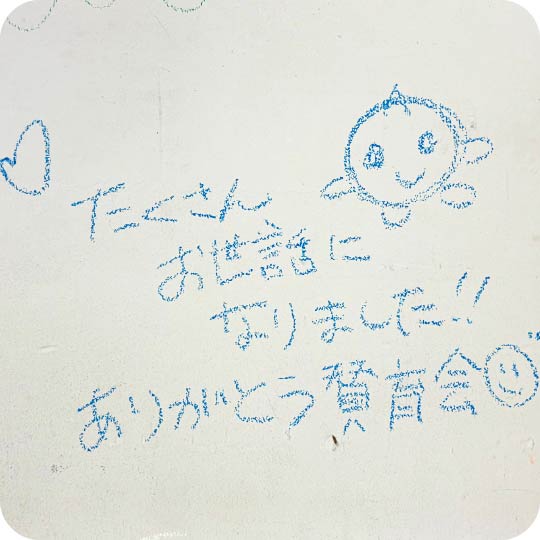 たくさん
お世話に
なりました!!
ありがとう賛育会